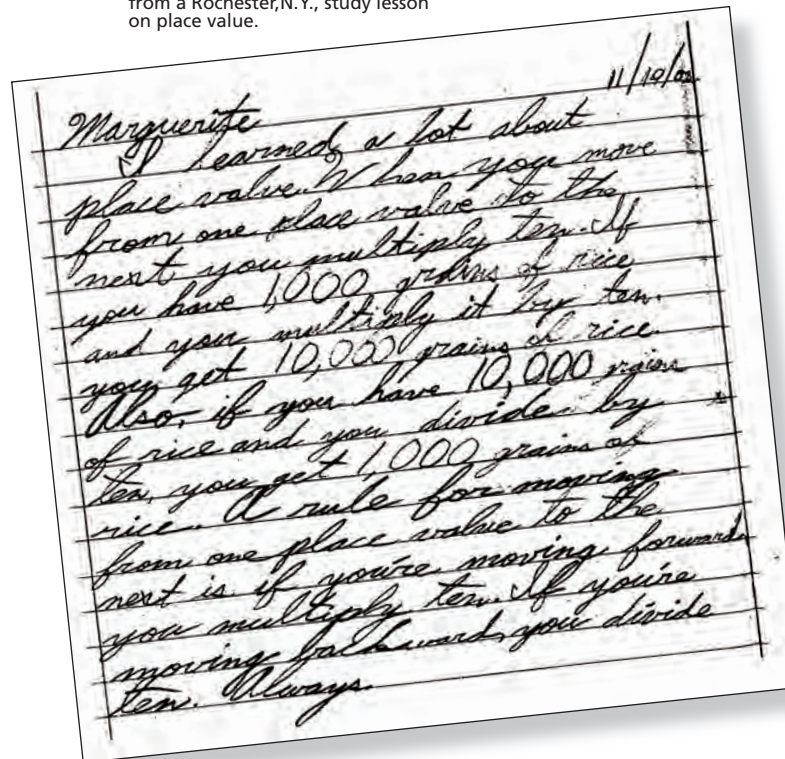 from a Rochester,N.Y., study lesson
on place value.
11/10/02
Marguerite
I learned a lot about
place value. When you move
from one place value to the
next you multiply ten. If
you have 1,000 grains of rice
and you multiply it by ten.
you get 10,000 grains of rice.
Also, if you have 10,000 grains
of rice and you divide by
ten, you get 1,000 grains of
rice. A rule for moving
from one place value to the
next is if you're moving forward
you multiply ten. If you're
moving backward, you divide
ten. Always.